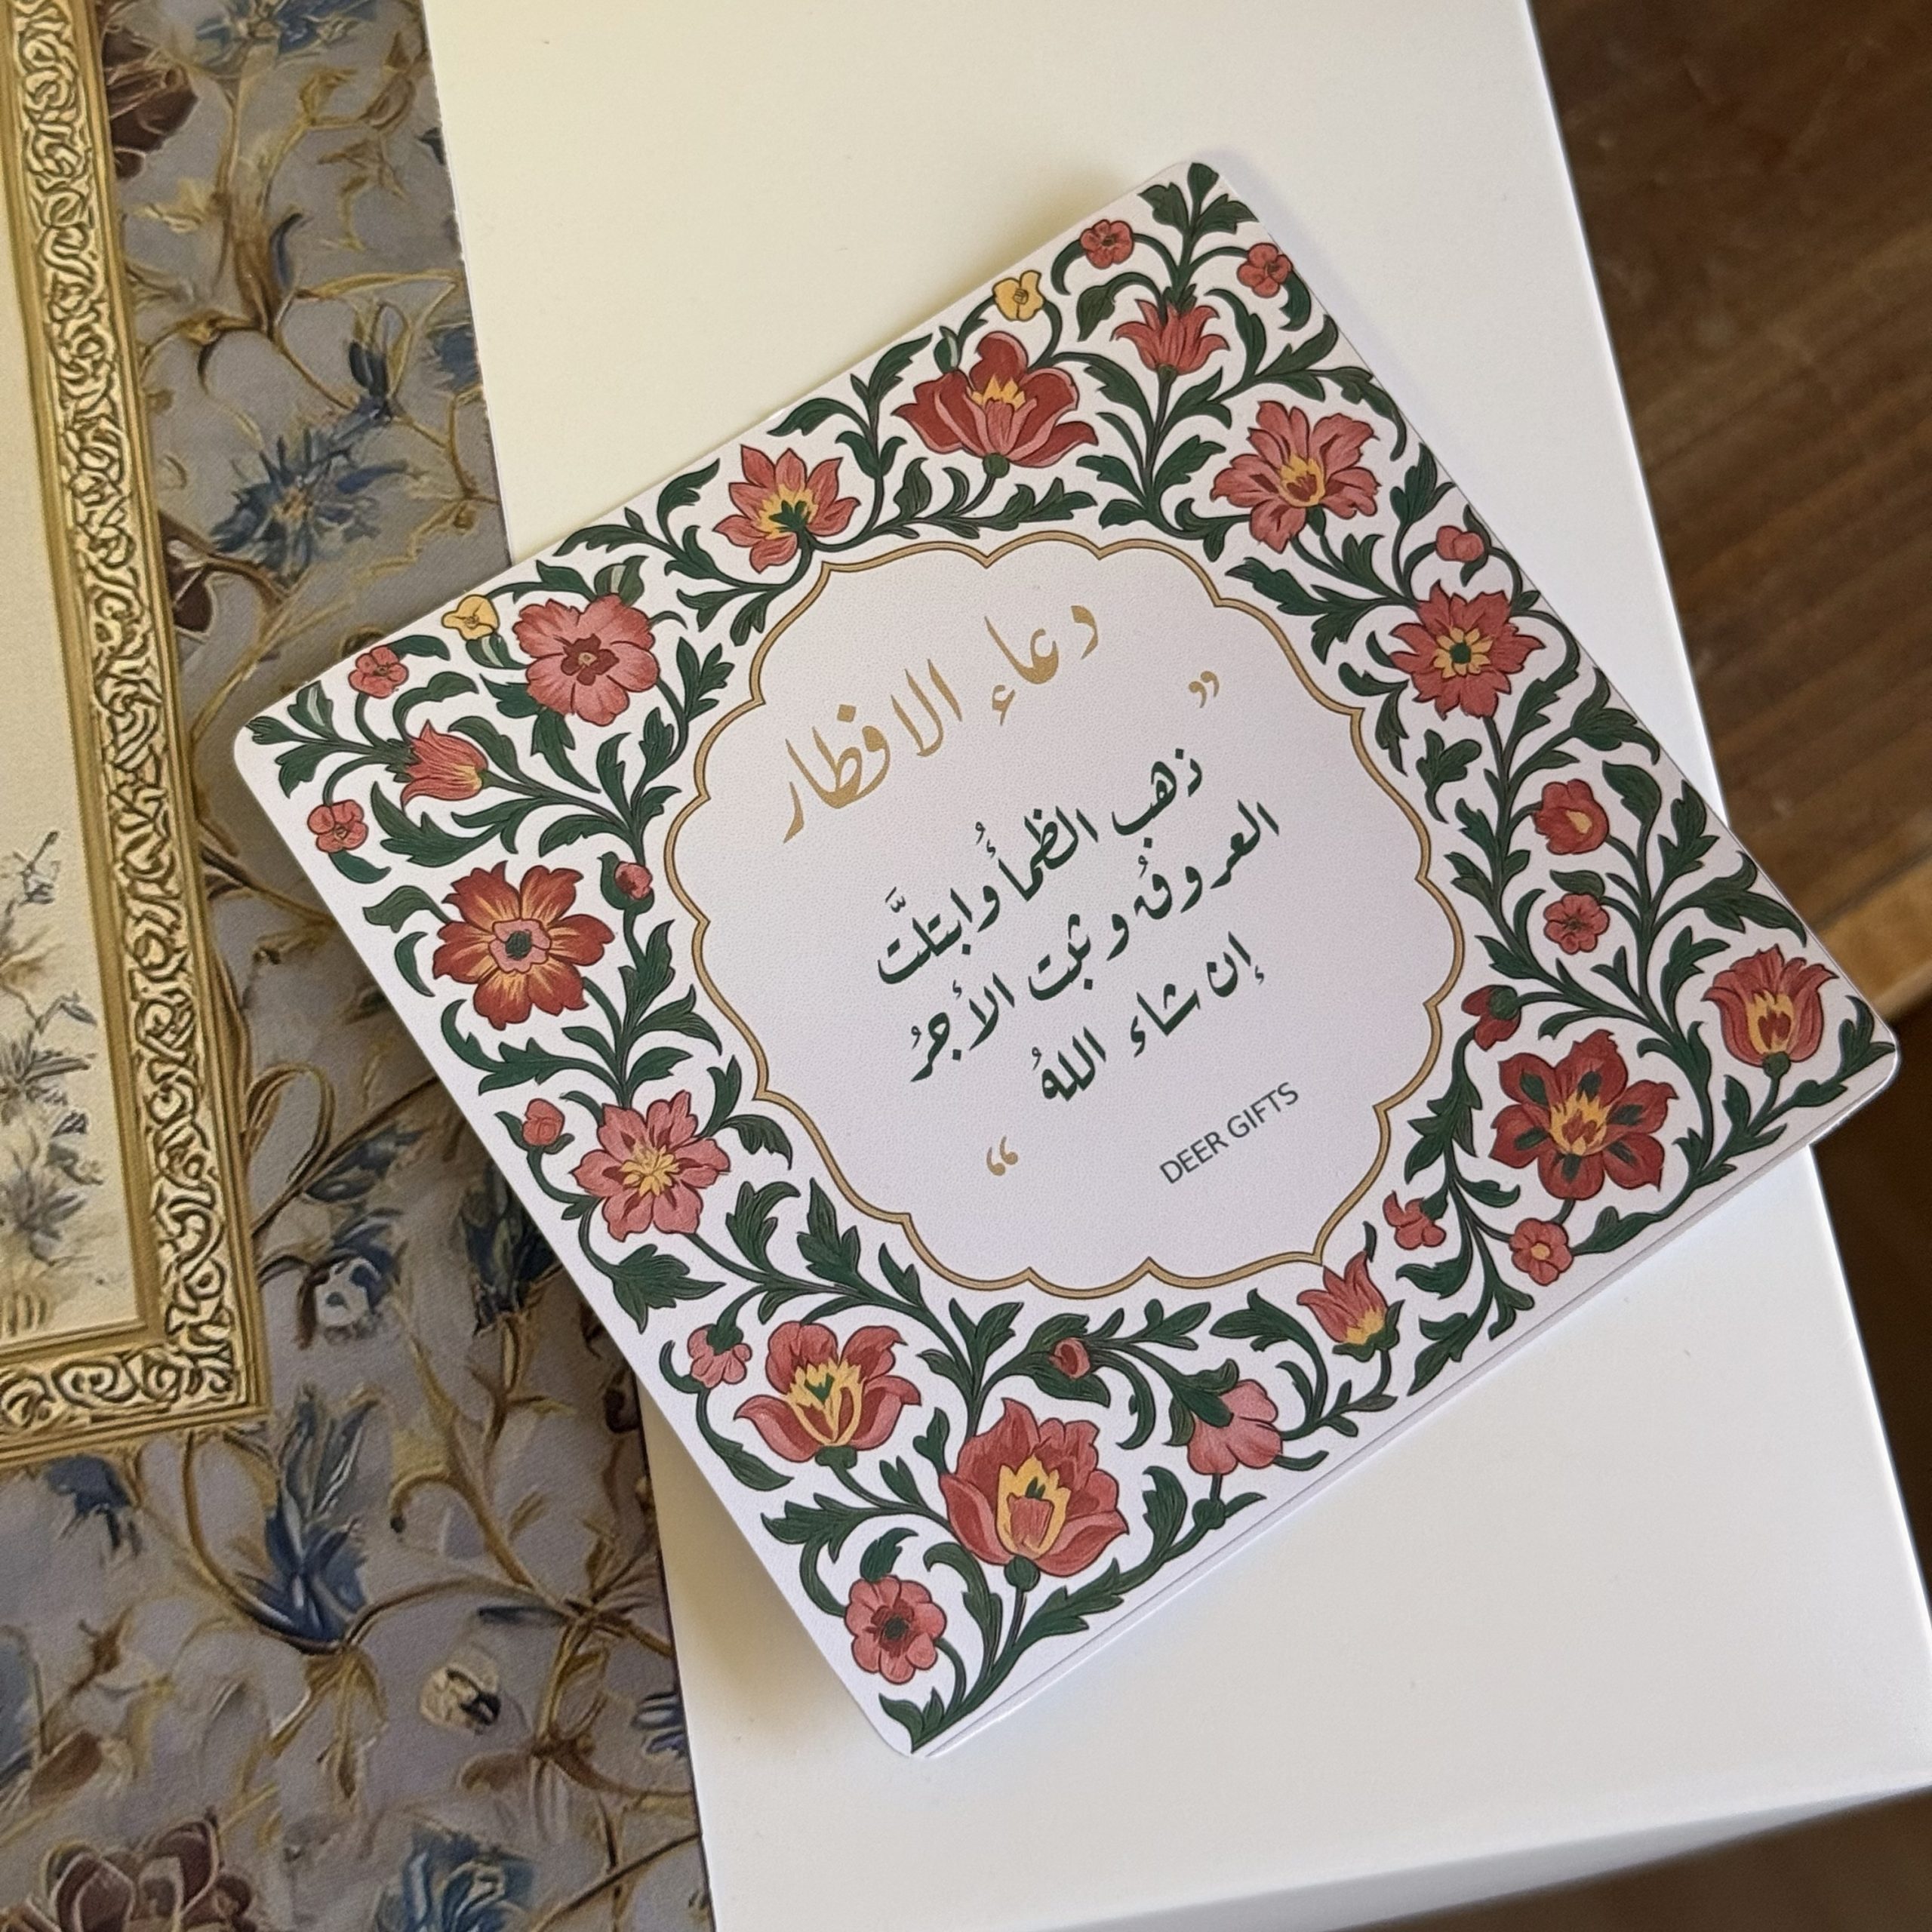 دعاء الافطار
”
ذهب الظمأُ وابتلَّت
العروقُ و ثبت الأجرُ
إن شاء اللهُ
“
DEER GIFTS